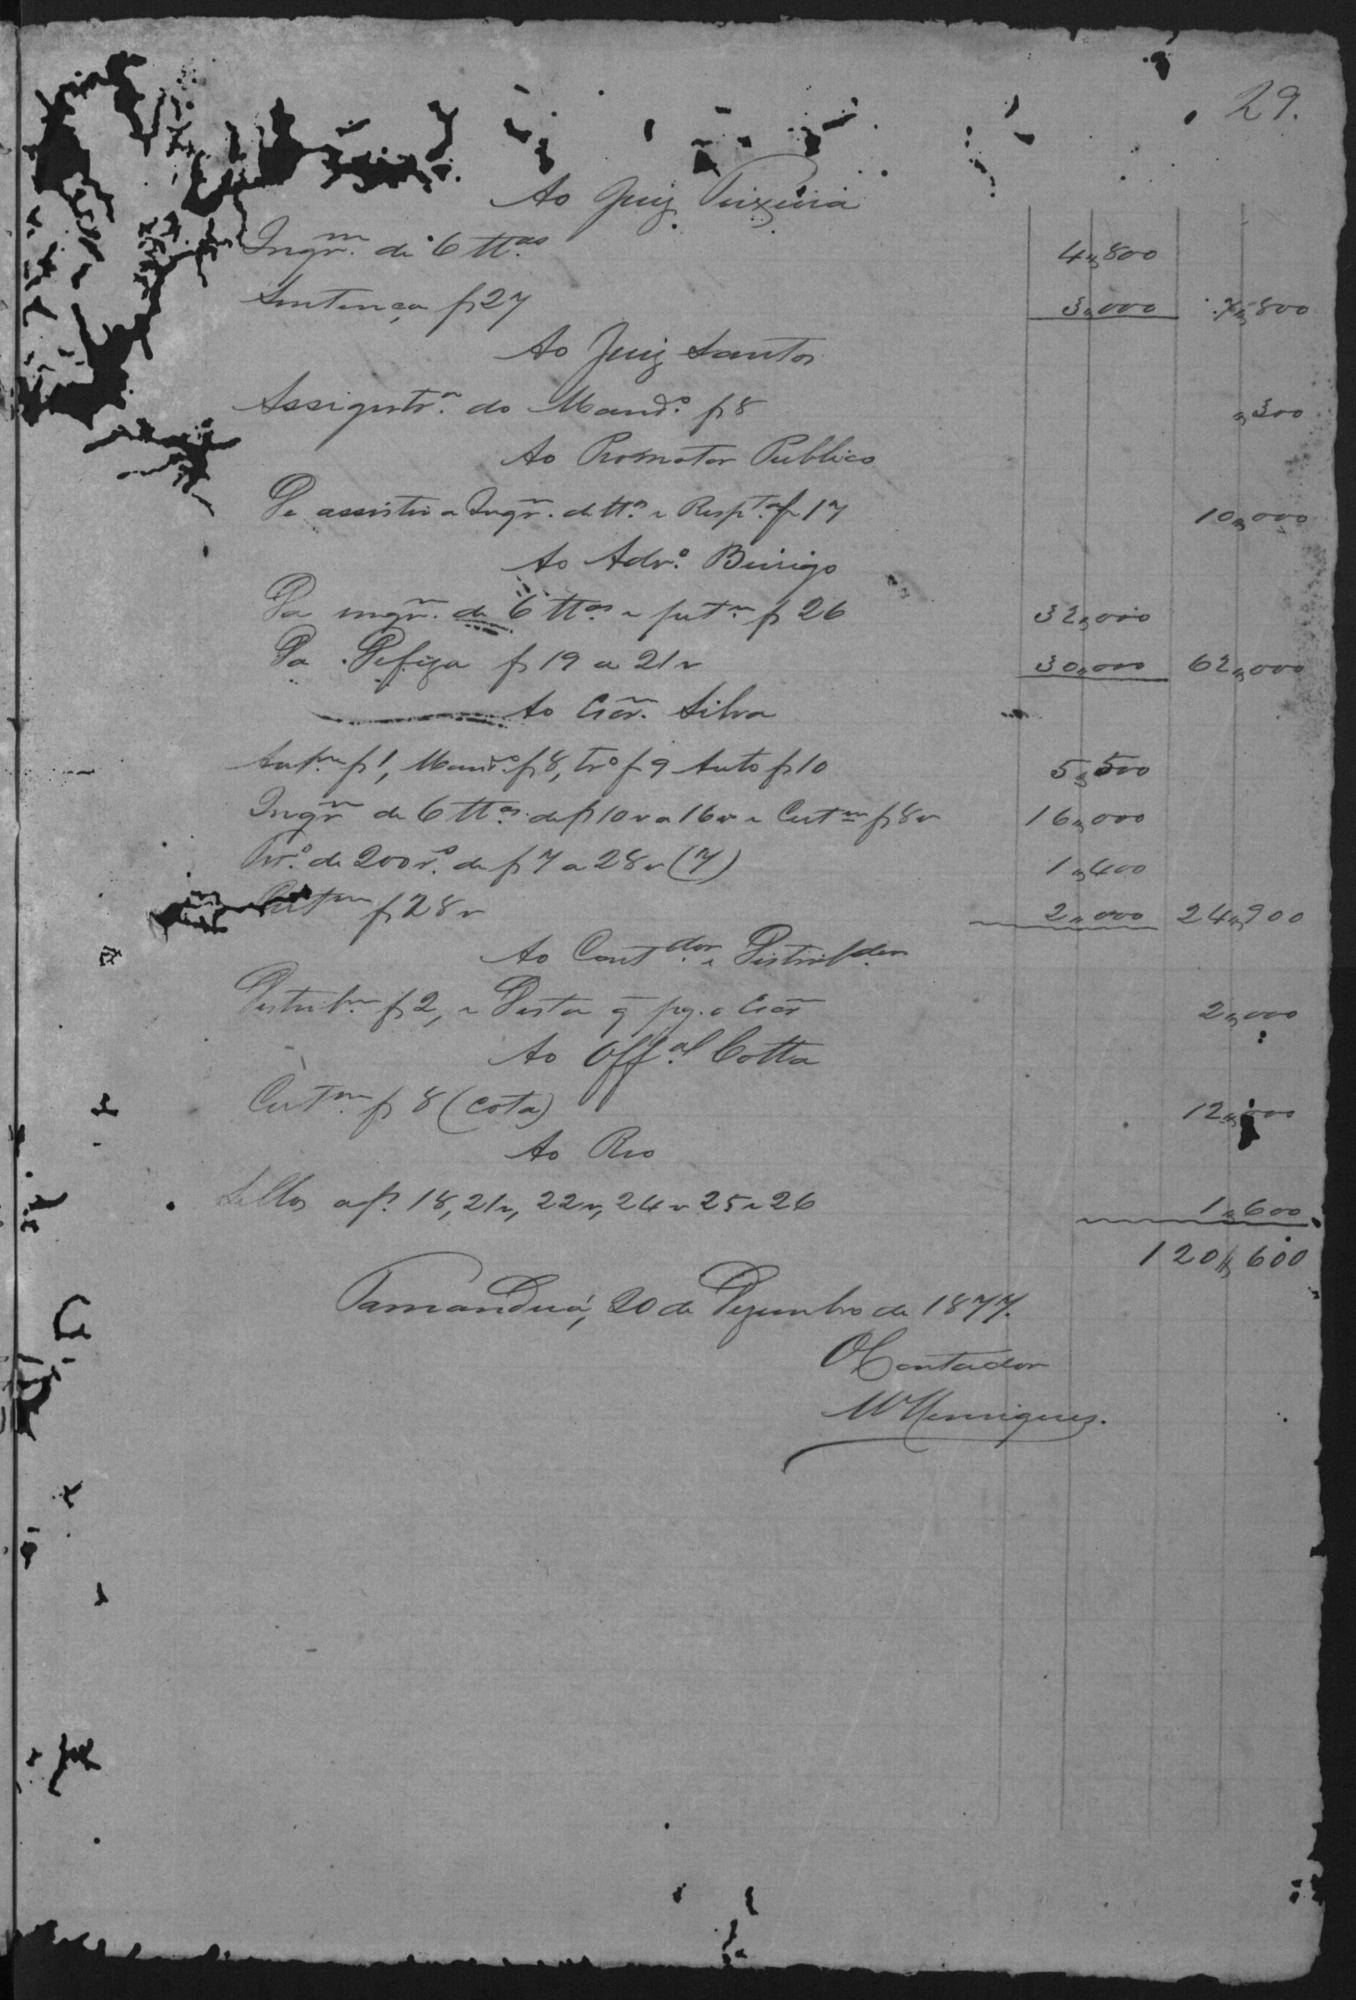 29.
Ao Juiz Teixeira
Inqr.m de 6 tt.as 4,,800
Sentença f 27 3,,000 7,,800
Ao Juiz Santos
Assignatr.a do Mand.o f 8 ,,300
Ao Promotor Publico
De assistir a Inqr.m de tt.as e Resp.ta f 17 10,,000
Ao Adv.o Beirigo
Da inqr.m de 6 tt.as e pet.m f 26 32,,000
Da Defeza f 19 a 21v 30,,000 62,,000
Ao Escr.m Silva
Aut.m f 1, Mand.o f 8, Tr.o f 9 Auto f 10 5,,500
Inqr.m de 6 tt.as de f 10v a 16v e Cert.m f 8v 16,,000
Tr.o de 200 r.s de f 7 a 28v (7) 1,,400
Cert.m f 28v 2,,000 24,,900
Ao Cont.dor e Distrib.dor
Distrib.m f 2, e Desta q̃ pg. o Escr.m 2,,000
Ao Off.al Cotta
Cert.m f 8 (cota) 12,,000
Ao Reo
Sellos a f. 18, 21v, 22v, 24v 25 e 26 1,,600
120,,600
Tamanduá, 20 de Dezembro de 1877.
O Contador
MHenriques.